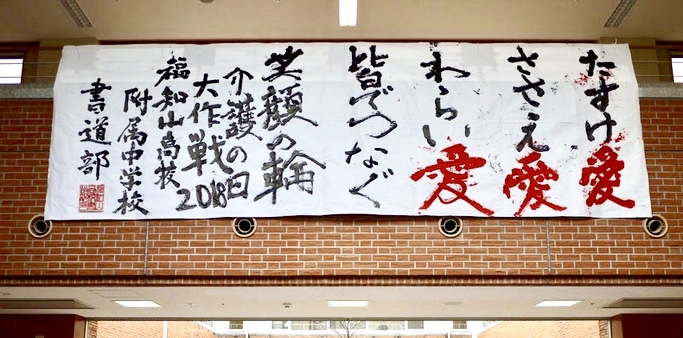 たすけ愛
ささえ愛
わらい愛
皆でつなぐ
笑顔の輪
介護の日
大作戦2018
福知山高校
附属中学校
書道部